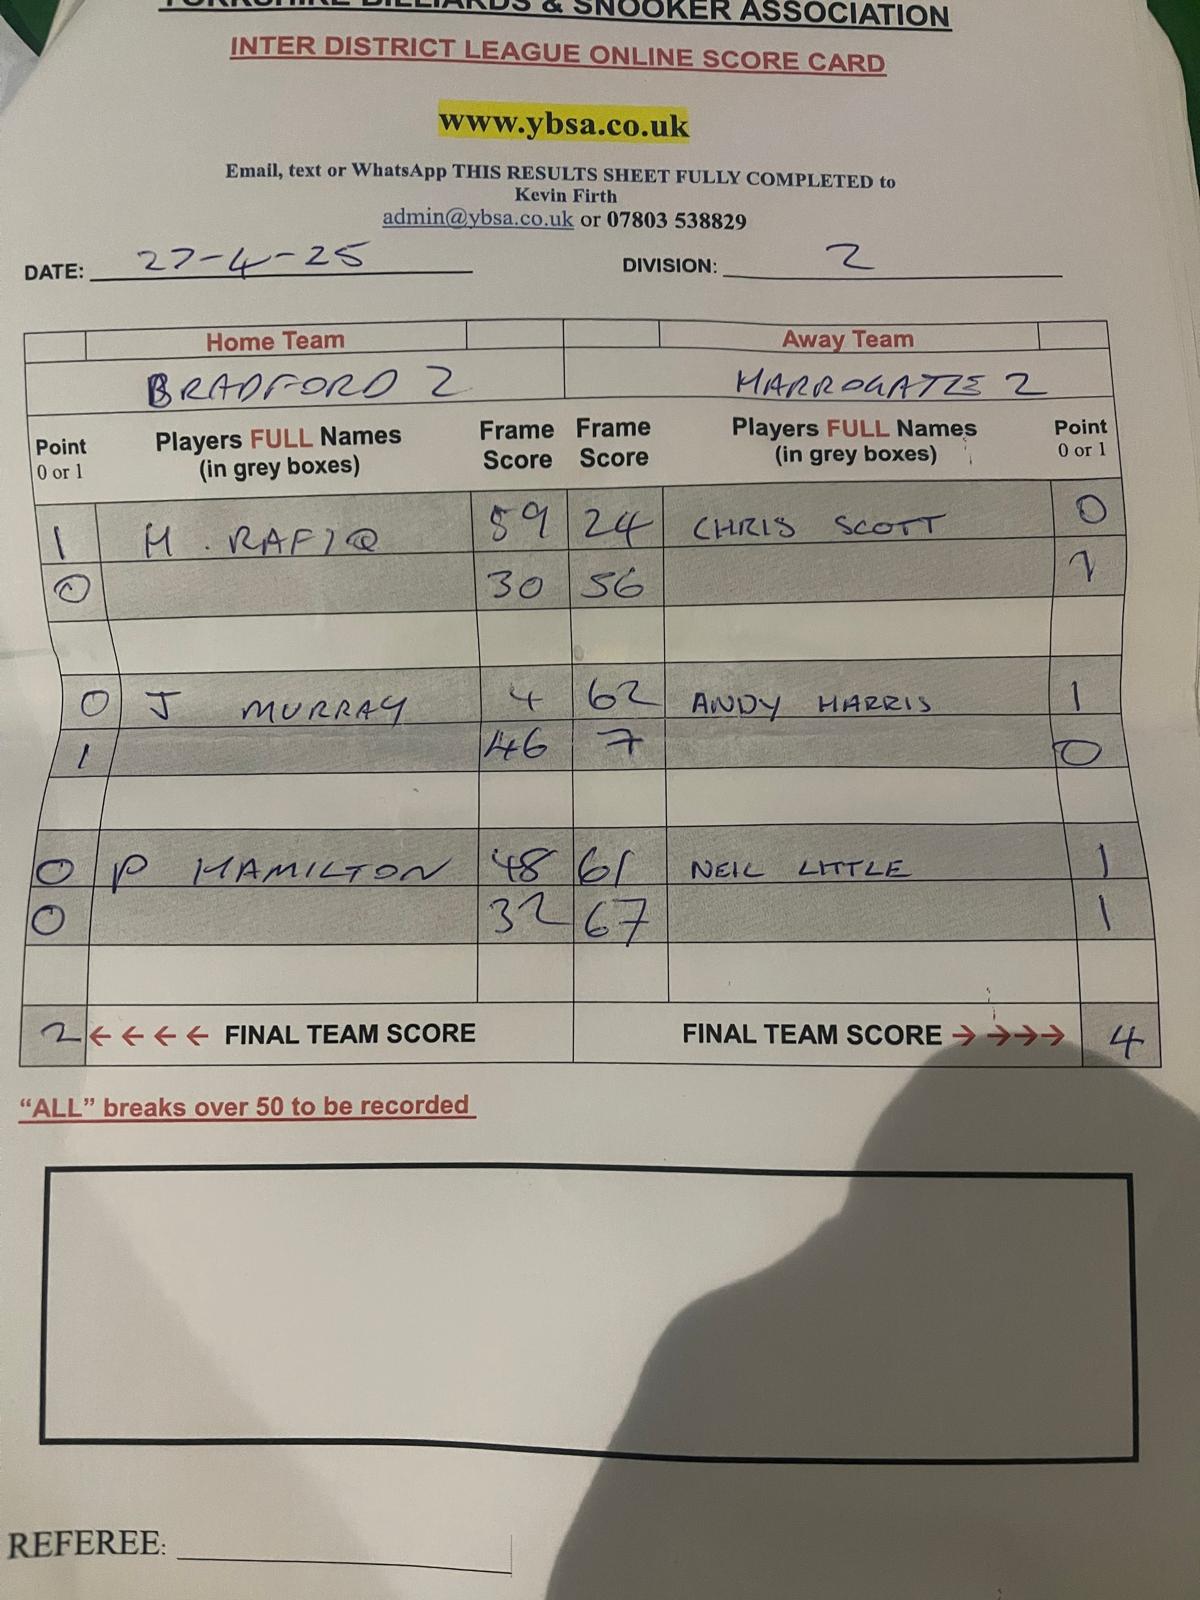 YORKSHIRE BILLIARDS & SNOOKER ASSOCIATION
INTER DISTRICT LEAGUE ONLINE SCORE CARD
www.ybsa.co.uk
Email, text or WhatsApp THIS RESULTS SHEET FULLY COMPLETED to
Kevin Firth
admin@ybsa.co.uk or 07803 538829
DATE: 27-4-25 DIVISION: 2
Home Team Away Team
BRADFORD 2 HARROGATE 2
Point 0 or 1 Players FULL Names (in grey boxes) Frame Score Frame Score Players FULL Names (in grey boxes) Point 0 or 1
1 M. RAFIQ 59 24 CHRIS SCOTT 0
0 30 56 1
0 J MURRAY 4 62 ANDY HARRIS 1
1 46 7 0
0 P HAMILTON 48 61 NEIL LITTLE 1
0 32 67 1
2 ← ← ← ← FINAL TEAM SCORE FINAL TEAM SCORE → →→→ 4
“ALL” breaks over 50 to be recorded
REFEREE: